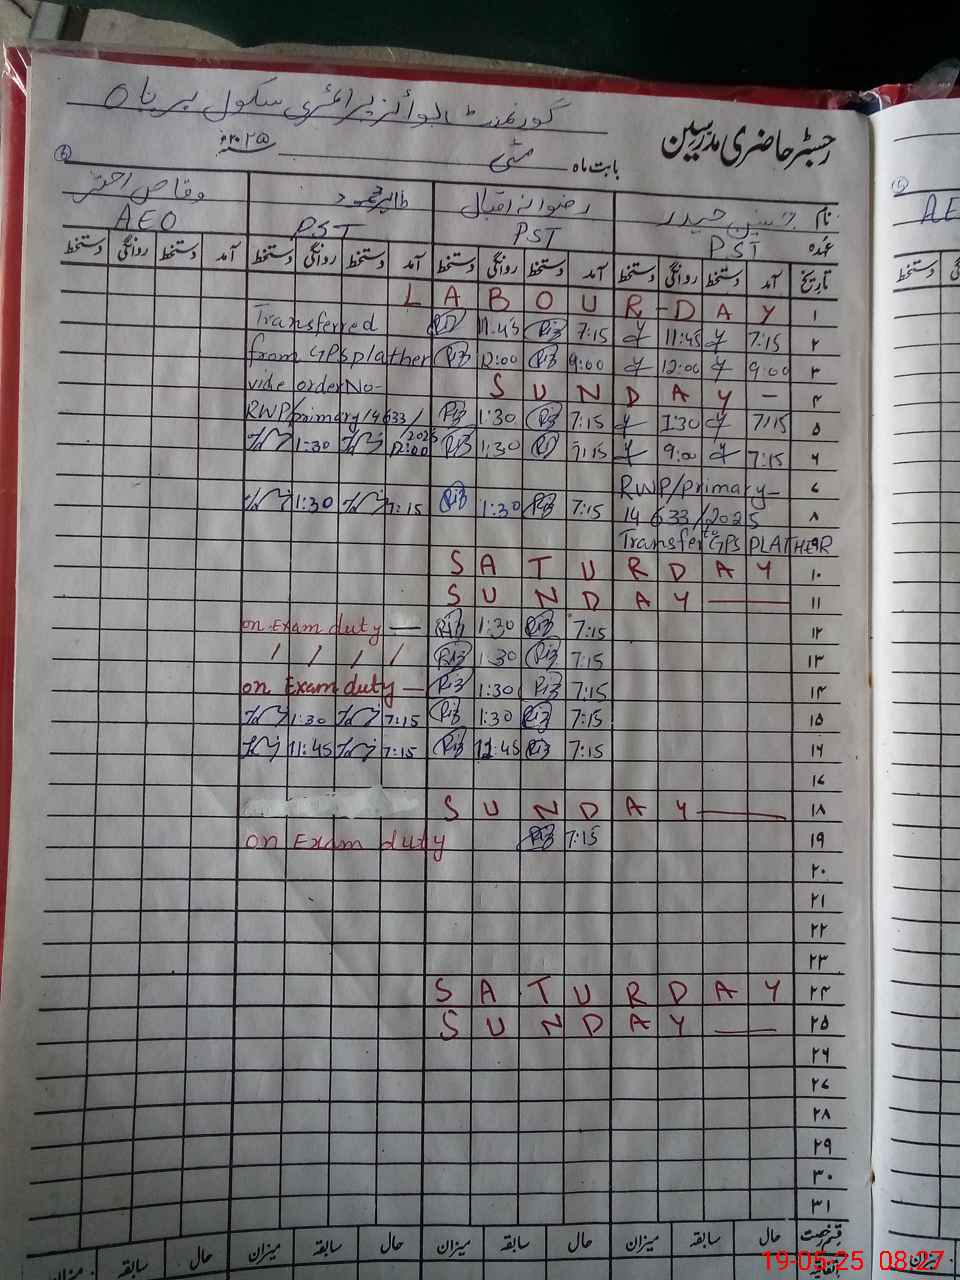 گورنمنٹ بوائز پرائمری سکول ہریاہ
رجسٹر حاضری مدرسین
بابت ماہ مئی ۲۰۲۵ء
نام حسنین حیدر رضوانہ اقبال طاہر محمود وقاص اختر
عہدہ PST PST PST AEO
تاریخ آمد دستخط روانگی دستخط آمد دستخط روانگی دستخط آمد دستخط روانگی دستخط آمد دستخط روانگی دستخط
۱ LABOUR-DAY
۲ 7:15 11:45 7:15 11:45 Transferred
۳ 9:00 12:00 9:00 12:00 from GPS plather
۴ SUNDAY - vide order No-
۵ 7:15 1:30 7:15 1:30 RWP/primary/14633/2025
۶ 7:15 9:00 7:15 1:30 12:00 1:30
۷ RWP/primary-
۸ 14633/2025 7:15 1:30 7:15 1:30
۹ Transfer to GPS PLATHER
۱۰ SATURDAY
۱۱ SUNDAY
۱۲ 7:15 1:30 on Exam duty
۱۳ 7:15 1:30 / / / /
۱۴ 7:15 1:30 on Exam duty
۱۵ 7:15 1:30 7:15 1:30
۱۶ 7:15 11:45 7:15 11:45
۱۷
۱۸ SUNDAY
۱۹ 7:15 on Exam duty
۲۰
۲۱
۲۲
۲۳
۲۴ SATURDAY
۲۵ SUNDAY
۲۶
۲۷
۲۸
۲۹
۳۰
۳۱
قسم رخصت حال سابقہ میزان حال سابقہ میزان حال سابقہ میزان حال سابقہ میزان
اتفاقیہ
19-05-25 08:27